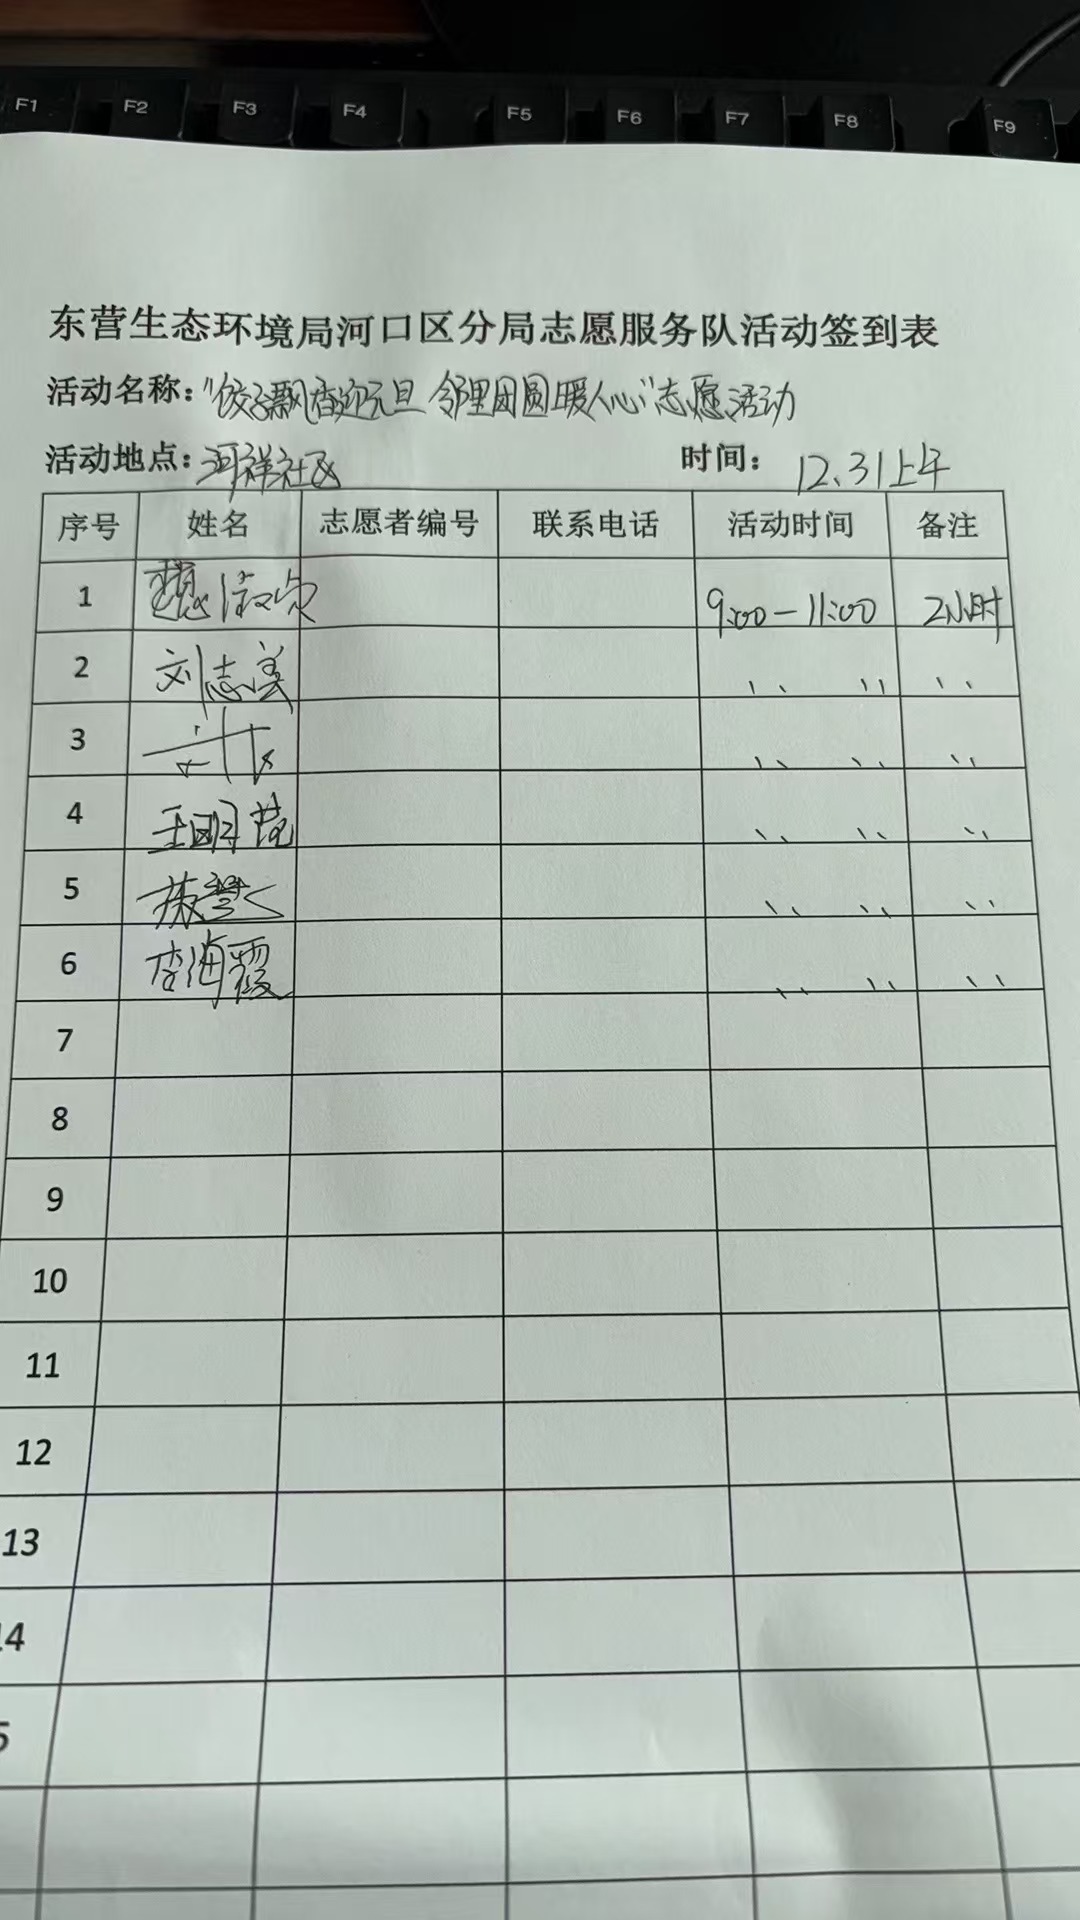 F1 F2 F3 F4 F5 F6 F7 F8 F9
东营生态环境局河口区分局志愿服务队活动签到表
活动名称：“饺子飘香迎元旦 邻里团圆暖人心”志愿活动
活动地点：河祥社区 时间：12.31上午
序号 姓名 志愿者编号 联系电话 活动时间 备注
1 9:00-11:00 2小时
2 刘志美 〃 〃 〃
3 〃 〃 〃
4 王明 〃 〃 〃
5 〃 〃 〃
6 李海霞 〃 〃 〃
7
8
9
10
11
12
13
14
5